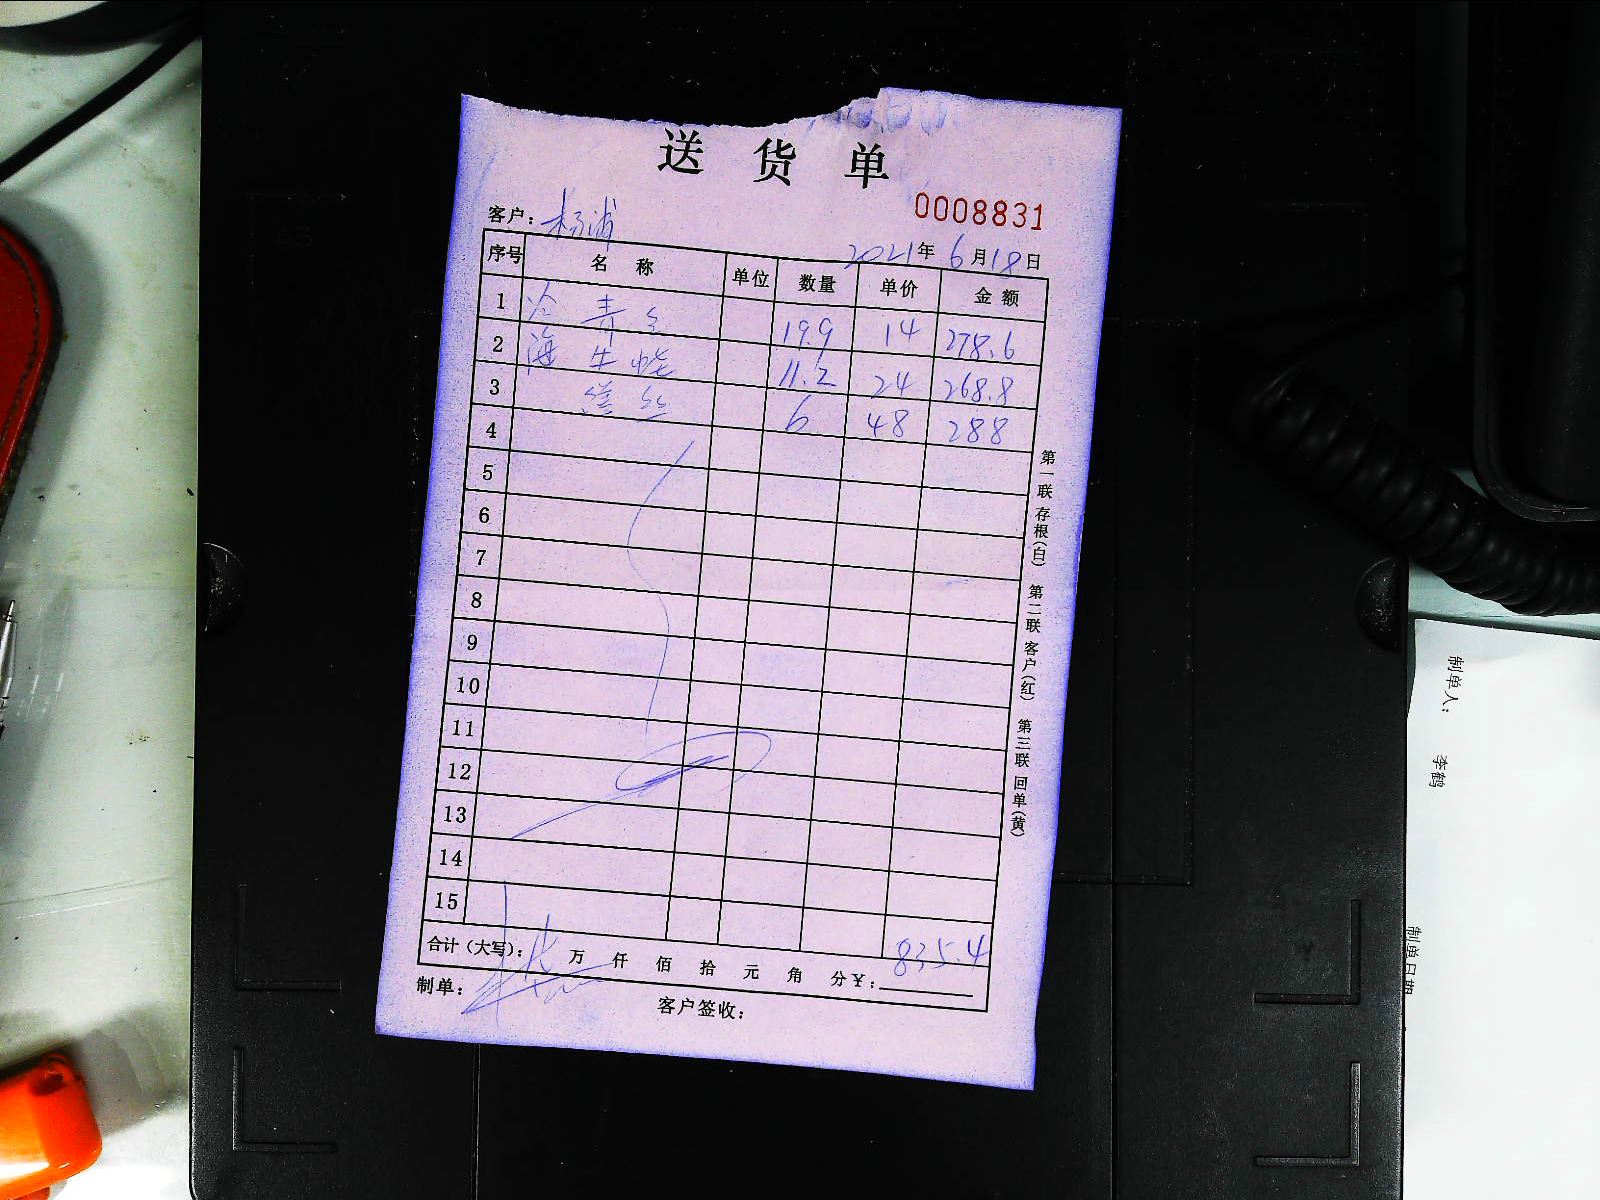 送货单
0008831
客户：杨浦
2021年6月18日
序号 名称 单位 数量 单价 金额
1 19.9 14 278.6
2 海 11.2 24 268.8
3 6 48 288
4
5
6
7
8
9
10
11
12
13
14
15
合计（大写）： 万 仟 佰 拾 元 角 分￥：835.4
制单：
客户签收：
第一联 存根（白） 第二联 客户（红） 第三联 回单（黄）
制单人： 李鹤
制单日期